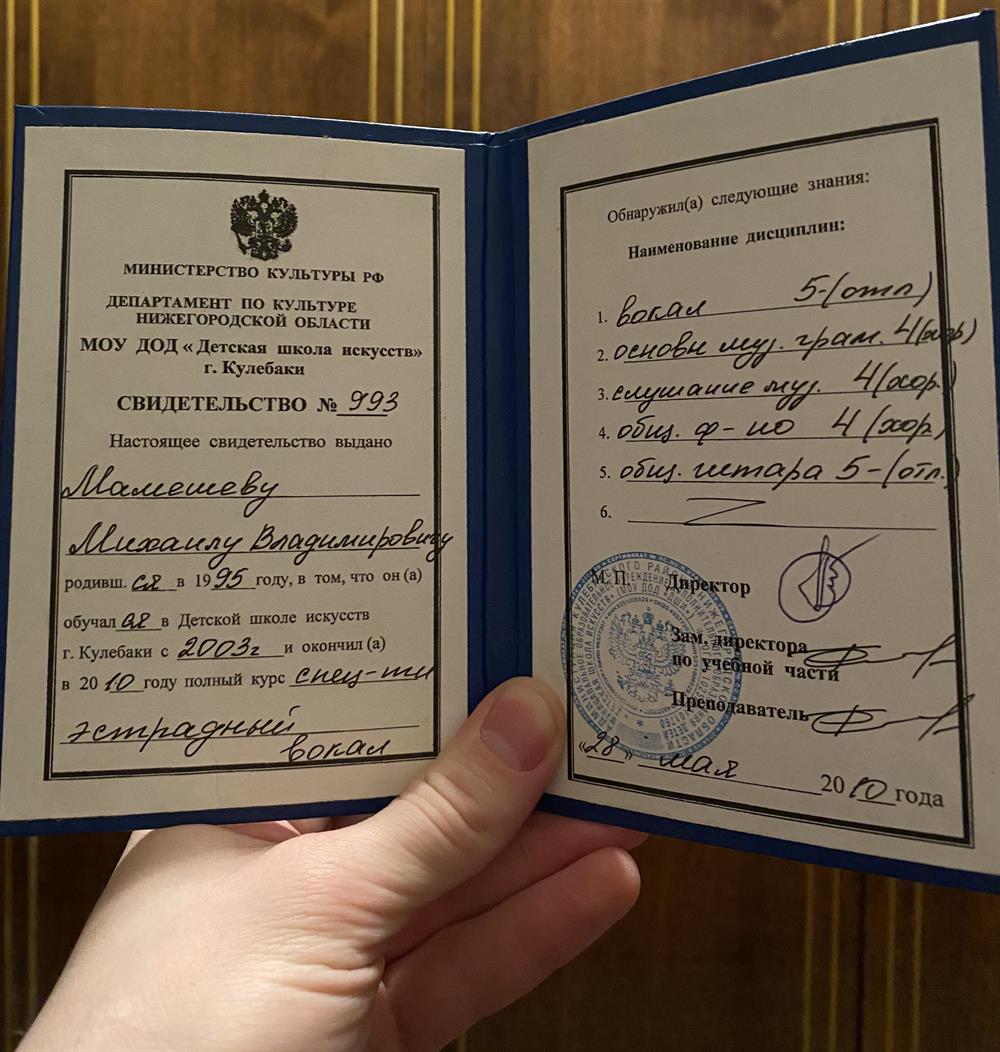 МИНИСТЕРСТВО КУЛЬТУРЫ РФ
ДЕПАРТАМЕНТ ПО КУЛЬТУРЕ
НИЖЕГОРОДСКОЙ ОБЛАСТИ
МОУ ДОД «Детская школа искусств»
г. Кулебаки
СВИДЕТЕЛЬСТВО № 993
Настоящее свидетельство выдано
Мамешеву
Михаилу Владимировичу
родивш. ся в 1995 году, в том, что он (а)
обучал ся в Детской школе искусств
г. Кулебаки с 2003г и окончил (а)
в 2010 году полный курс спец-ти
эстрадный
вокал
Обнаружил(а) следующие знания:
Наименование дисциплин:
1. вокал 5-(отл)
2. основы муз. грам. 4(хор)
3. слушание муз. 4(хор.)
4. общ. ф-но 4(хор)
5. общ. гитара 5-(отл.)
6.
М. П. Директор
Зам. директора
по учебной части
Преподаватель
«28» мая 2010 года